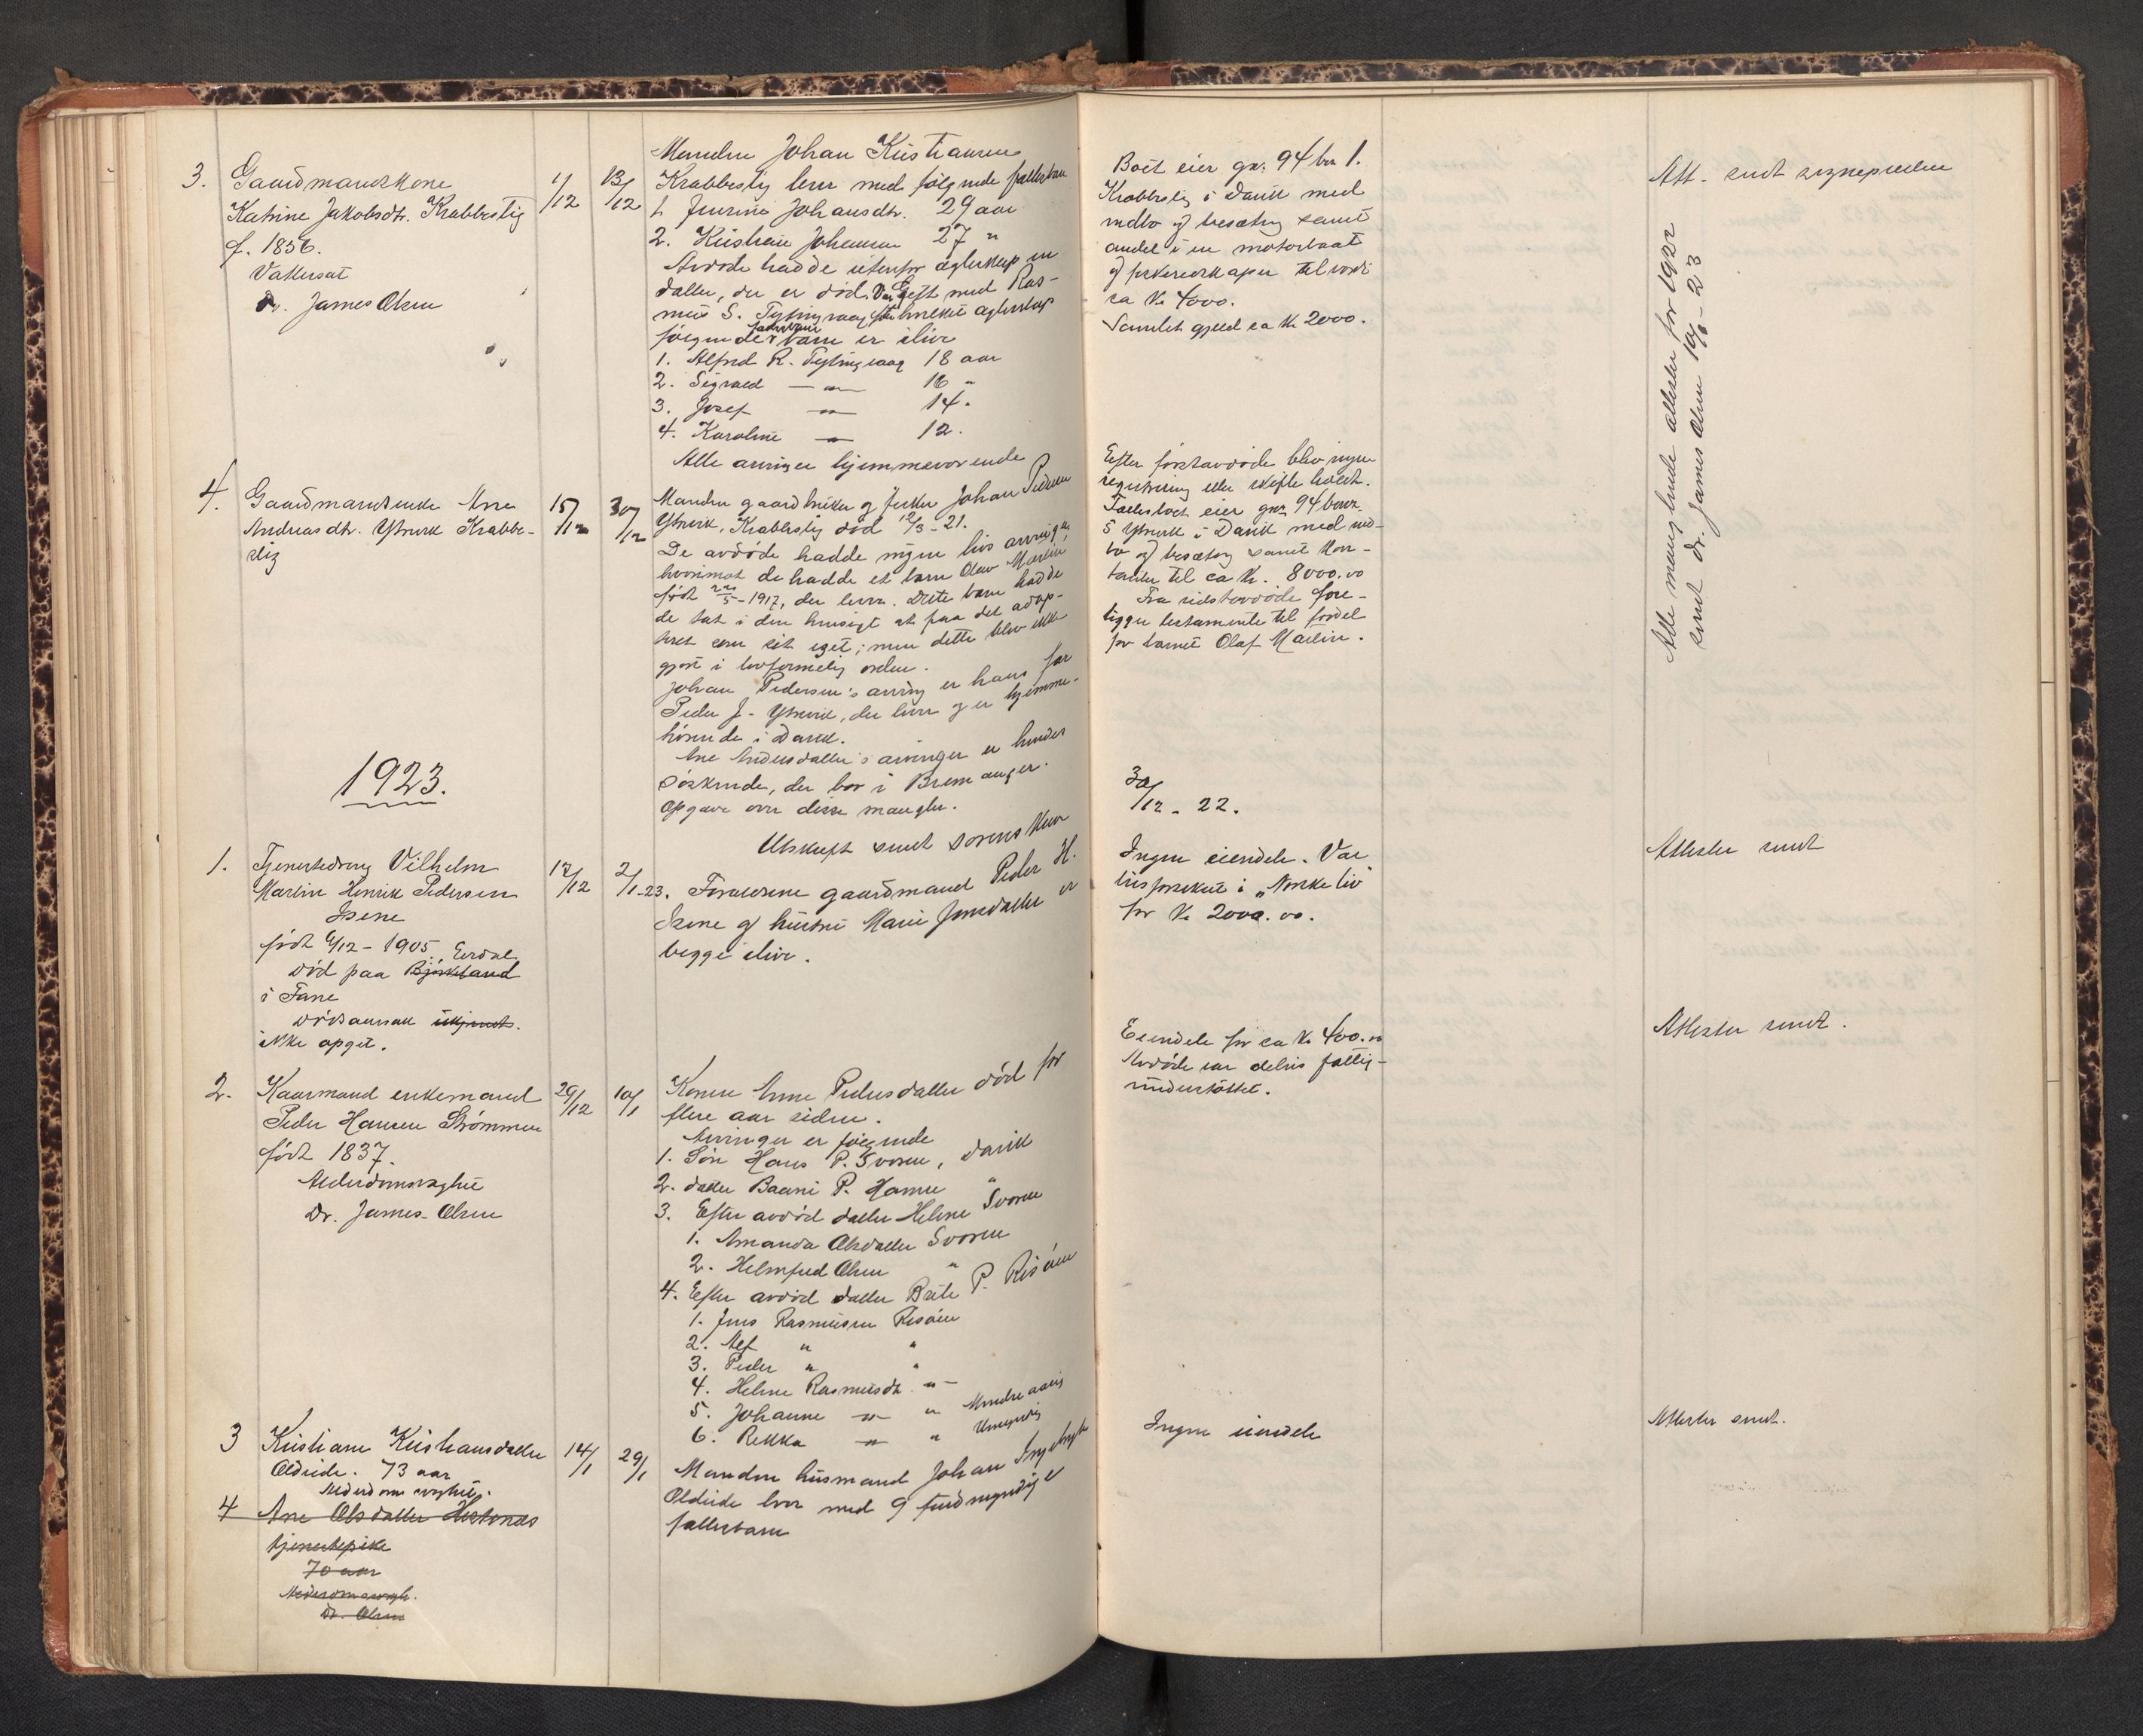 3.
Gaardmandskone
Katrine Jakobsdtr. Krabbestig
f. 1856.
Vattersot
Dr. James Olsen
11/12
13/12
Manden Johan Kristiansen
Krabbestig lever med følgende fællesbarn
1. Jensine Johansdtr. 29 aar
2. Kristian Johansen 27 "
Avdøde hadde utenfor egteskap en
datter, der er død. Var gift med Ras-
mus S. Tytingvaag efter hvilket egteskap
følgende barn er ilive
1. Alfred R. Tytingvaag 18 aar
2. Sigvald — " — 16 "
3. Josef — " — 14.
4. Karoline — " — 12.
Alle arvinger hjemmeværende
Boet eier gnr. 94 bnr 1.
Krabbestig i Davik med
indbo og besætning samt
andel i en motorbaat
og fiskeredskaper til værdi
ca Kr 4000.
Samlet gjeld ca Kr 2000.
Att. sendt sognepresten
4.
Gaardmandsenke Ane
Andreasdtr. Ytrevik Krabbe-
stig
15/12
30/12
Manden gaardbruker og fisker Johan Pedersen
Ytrevik, Krabbestig død 12/3-21.
De avdøde hadde ingen livsarvinger,
hvorimot de hadde et barn Olav Martin
født 22/5-1917, der lever. Dette barn hadde
de tat i den hensigt at faa det adop-
teret som sit eget; men dette blev ikke
gjort i lovformelig orden.
Johan Pedersen's arving er hans far
Peder J. Ytrevik, der lever og er hjemme-
hørende i Davik.
Ane Andersdatter's arvinger er hendes
søskende, der bor i Bremanger.
Opgave over disse mangler.
Utskrift sendt sorenskriver
Efter førstavdøde blev ingen
registrering eller skifte holdt.
Fællesboet eier gnr. 94 bnr.
5 Ytrevik i Davik med ind-
bo og besætning samt kon-
tanter til ca Kr. 8000.00
Fra sidstavdøde fore-
ligger testamente til fordel
for barnet Olaf Martin.
30/12 - 22.
Alle manglende attester for 1922
sendt dr. James Olsen 10/8-23
1923.
1.
Tjenestedreng Vilhelm
Martin Henrik Pedersen
Isene
født 6/12-1905.
Eerdal
død paa Bjørkeland
i Fane
Dødsaarsak ukjendt.
ikke opget.
17/12
2/1-23.
Forældrene gaardmand Peder H.
Isene og hustru Marie Jonsdatter er
begge ilive.
Ingen eiendele. Var
livsforsikret i "Norske Liv"
for Kr 2000.00.
Attester sendt
2.
Kaarmand enkemand
Peder Hansen Strømmen
født 1837.
Alderdomsvaghet
Dr. James Olsen
29/12
10/1
Konen Anne Pedersdatter død for
flere aar siden.
Arvinger er følgende
1. Søn Hans P. Svoren, Davik
2. datter Baani P. Hamre "
3. Efter avdød datter Helene Svoren
1. Amanda Olsdatter Svoren
2. Helmfred Olsen "
4. Efter avdød datter Brite P. Risøen
1. Jens Rasmussen Risøen
2. Alf " "
3. Peder " "
4. Helene Rasmusdtr. — " —
5. Johanne — " — " Mindreaarig
6. Rekka — " — " Umyndig
Eiendele for ca Kr 400.00
Avdøde var delvis fattig-
understøttet.
Attester sendt.
3
Kristiane Kristiansdatter
Oldeide. 73 aar
Alderdomsvaghet.
14/1
29/1
Manden husmand Johan Ingebrigts
Oldeide lever med 9 fuldmyndige
fællesbarn
Ingen eiendele
Attester sendt.
4
Ane Olsdatter Hestenes
tjenestepike
70 aar
Alderdomsvagh.
Dr. Olsen